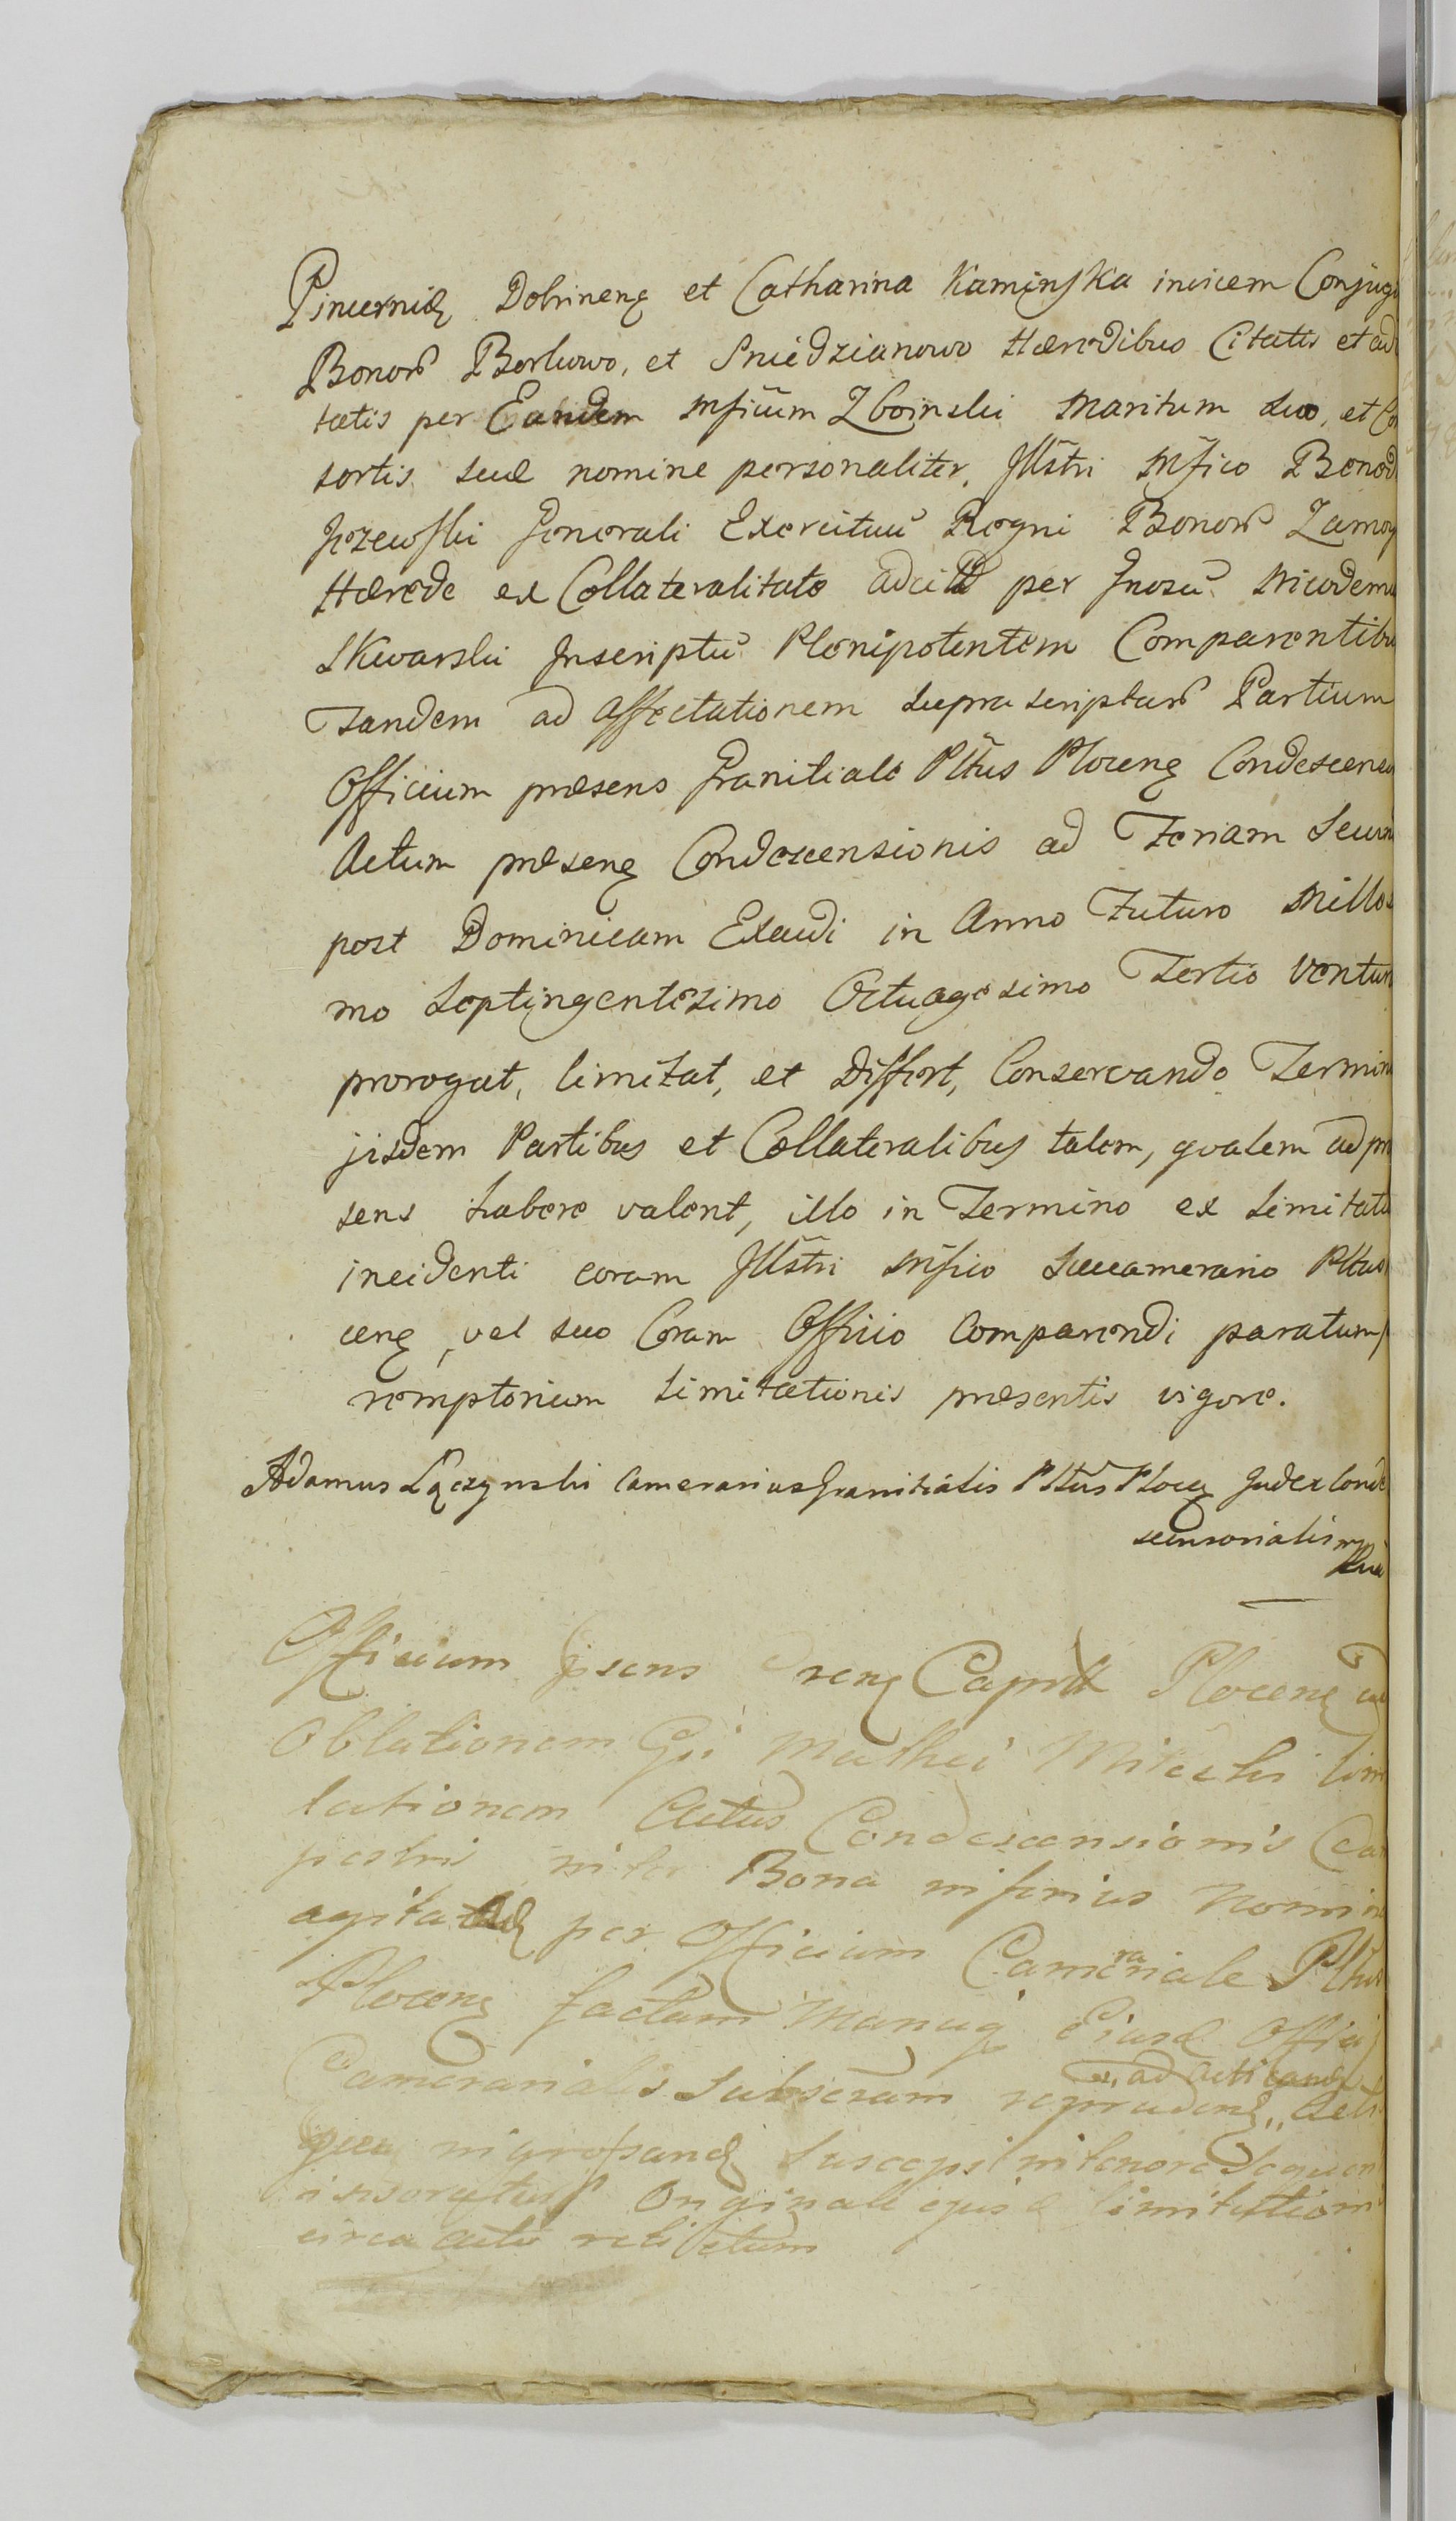 Pincernidæ Dobrinenę et Catharina Kaminska invicem Conjugi
Bonoru Borluwo, et Sniedzianowo Hæredibus Citatis et ad
tatis per Eundem Mficum Zboinski Maritum suo, et Con
sortis suæ nomine personaliter, Jllstri Mfico Bened
Jezewski Generali Exercituu Regni Bonoru Zamoy
Hærede ex Collateralitate adcitto per Gnosu Nicodemu
Skwarski Inscriptu Plenipotentem Comparentibu
Tandem ad affectationem suprascriptaru Partium
Officium præsens Granitiale Pltus Plocenę Condescens
Actum præsenę Condescensionis ad Feriam Secun
post Dominicam Exaudi in Anno Futuro Milles
mo Septingentesimo Octuagesimo Tertio Ventur
prorogat, limitat, et Differt, Conservando Termin
jisdem Partibus et Collateralibus talem, qvalem ad præ
sens habere valent, illo in Termino ex Limitatio
incidenti coram Jllstri Mfico Succamerario Pltus
cenę, vel suo Coram Officio Comparendi paratum p
remptorium Limitationis præsentis vigore.
Adamus Łączynski Camerarius Granitialis Pltus Plocę Judex Conde
scensorialis mp
Officium psens Crenę Capitt Plocenę ad
Oblationem Gsi Mathei Miecki Limi
tationem Actus Condescensionis Cam
pestris inter Bona inferius Nomin
agitatæ per Officium Camerariale Pltus
Plocenę factam Manuq Ejusd Officij
Camerarialis Subscram reproducenę, Acti
ad Acticand
que ingrossand Suscepi in tenore Sequen
insertus Originali ejusd limitationi
circa acta relictum